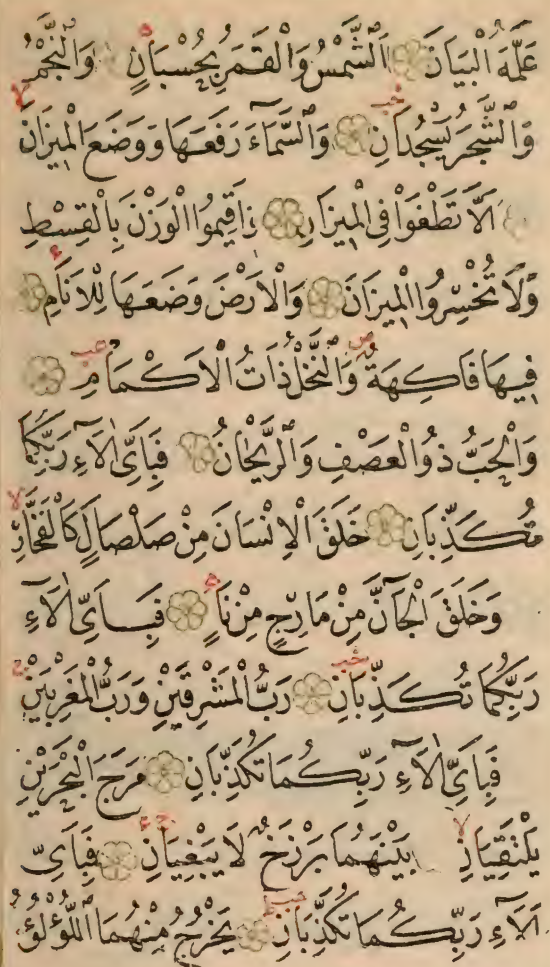 عَلَّمَهُ الْبَيَانَ اَلشَّمْسُ وَالْقَمَرُ بِحُسْبَانٍ وَالنَّجْمُ
وَالشَّجَرُ يَسْجُدَانِ وَالسَّمَآءَ رَفَعَهَا وَوَضَعَ الْمِيزَانَ
اَلَّا تَطْغَوْا فِى الْمِيزَانِ وَاَقِيمُوا الْوَزْنَ بِالْقِسْطِ
وَلَا تُخْسِرُوا الْمِيزَانَ وَالْاَرْضَ وَضَعَهَا لِلْاَنَامِ
فِيهَا فَاكِهَةٌ وَالنَّخْلُ ذَاتُ الْاَكْمَامِ
وَالْحَبُّ ذُو الْعَصْفِ وَالرَّيْحَانُ فَبِاَىِّ اٰلَآءِ رَبِّكُمَا
تُكَذِّبَانِ خَلَقَ الْاِنْسَانَ مِنْ صَلْصَالٍ كَالْفَخَّارِ
وَخَلَقَ الْجَآنَّ مِنْ مَارِجٍ مِنْ نَارٍ فَبِاَىِّ اٰلَآءِ
رَبِّكُمَا تُكَذِّبَانِ رَبُّ الْمَشْرِقَيْنِ وَرَبُّ الْمَغْرِبَيْنِ
فَبِاَىِّ اٰلَآءِ رَبِّكُمَا تُكَذِّبَانِ مَرَجَ الْبَحْرَيْنِ
يَلْتَقِيَانِ بَيْنَهُمَا بَرْزَخٌ لَا يَبْغِيَانِ فَبِاَىِّ
اٰلَآءِ رَبِّكُمَا تُكَذِّبَانِ يَخْرُجُ مِنْهُمَا اللُّؤْلُؤُ